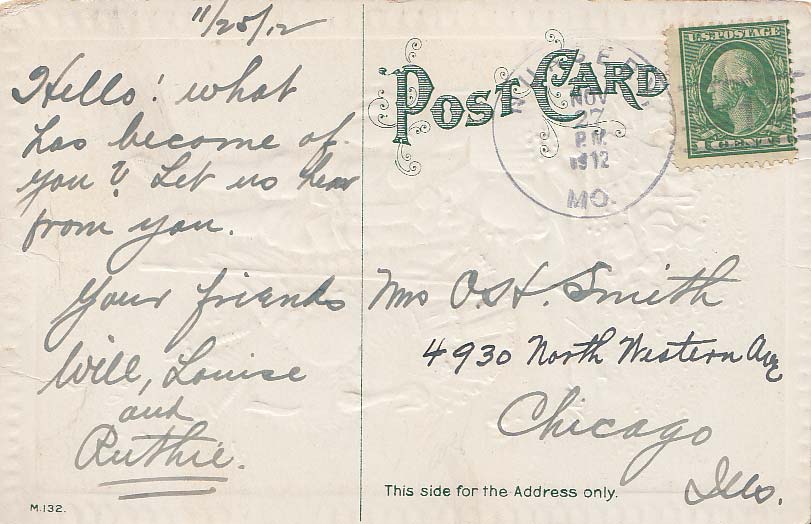 11/25/12
Hello! what
has become of
you? Let us hear
from you.
Your friends
Will, Louise
and
Ruthie.
M.132.
POST CARD
NOV
27
P.M.
1912
MO.
U.S. POSTAGE
1 CENT 1
Mrs O.S.H. Smith
4930 North Western Ave
Chicago
Ills.
This side for the Address only.